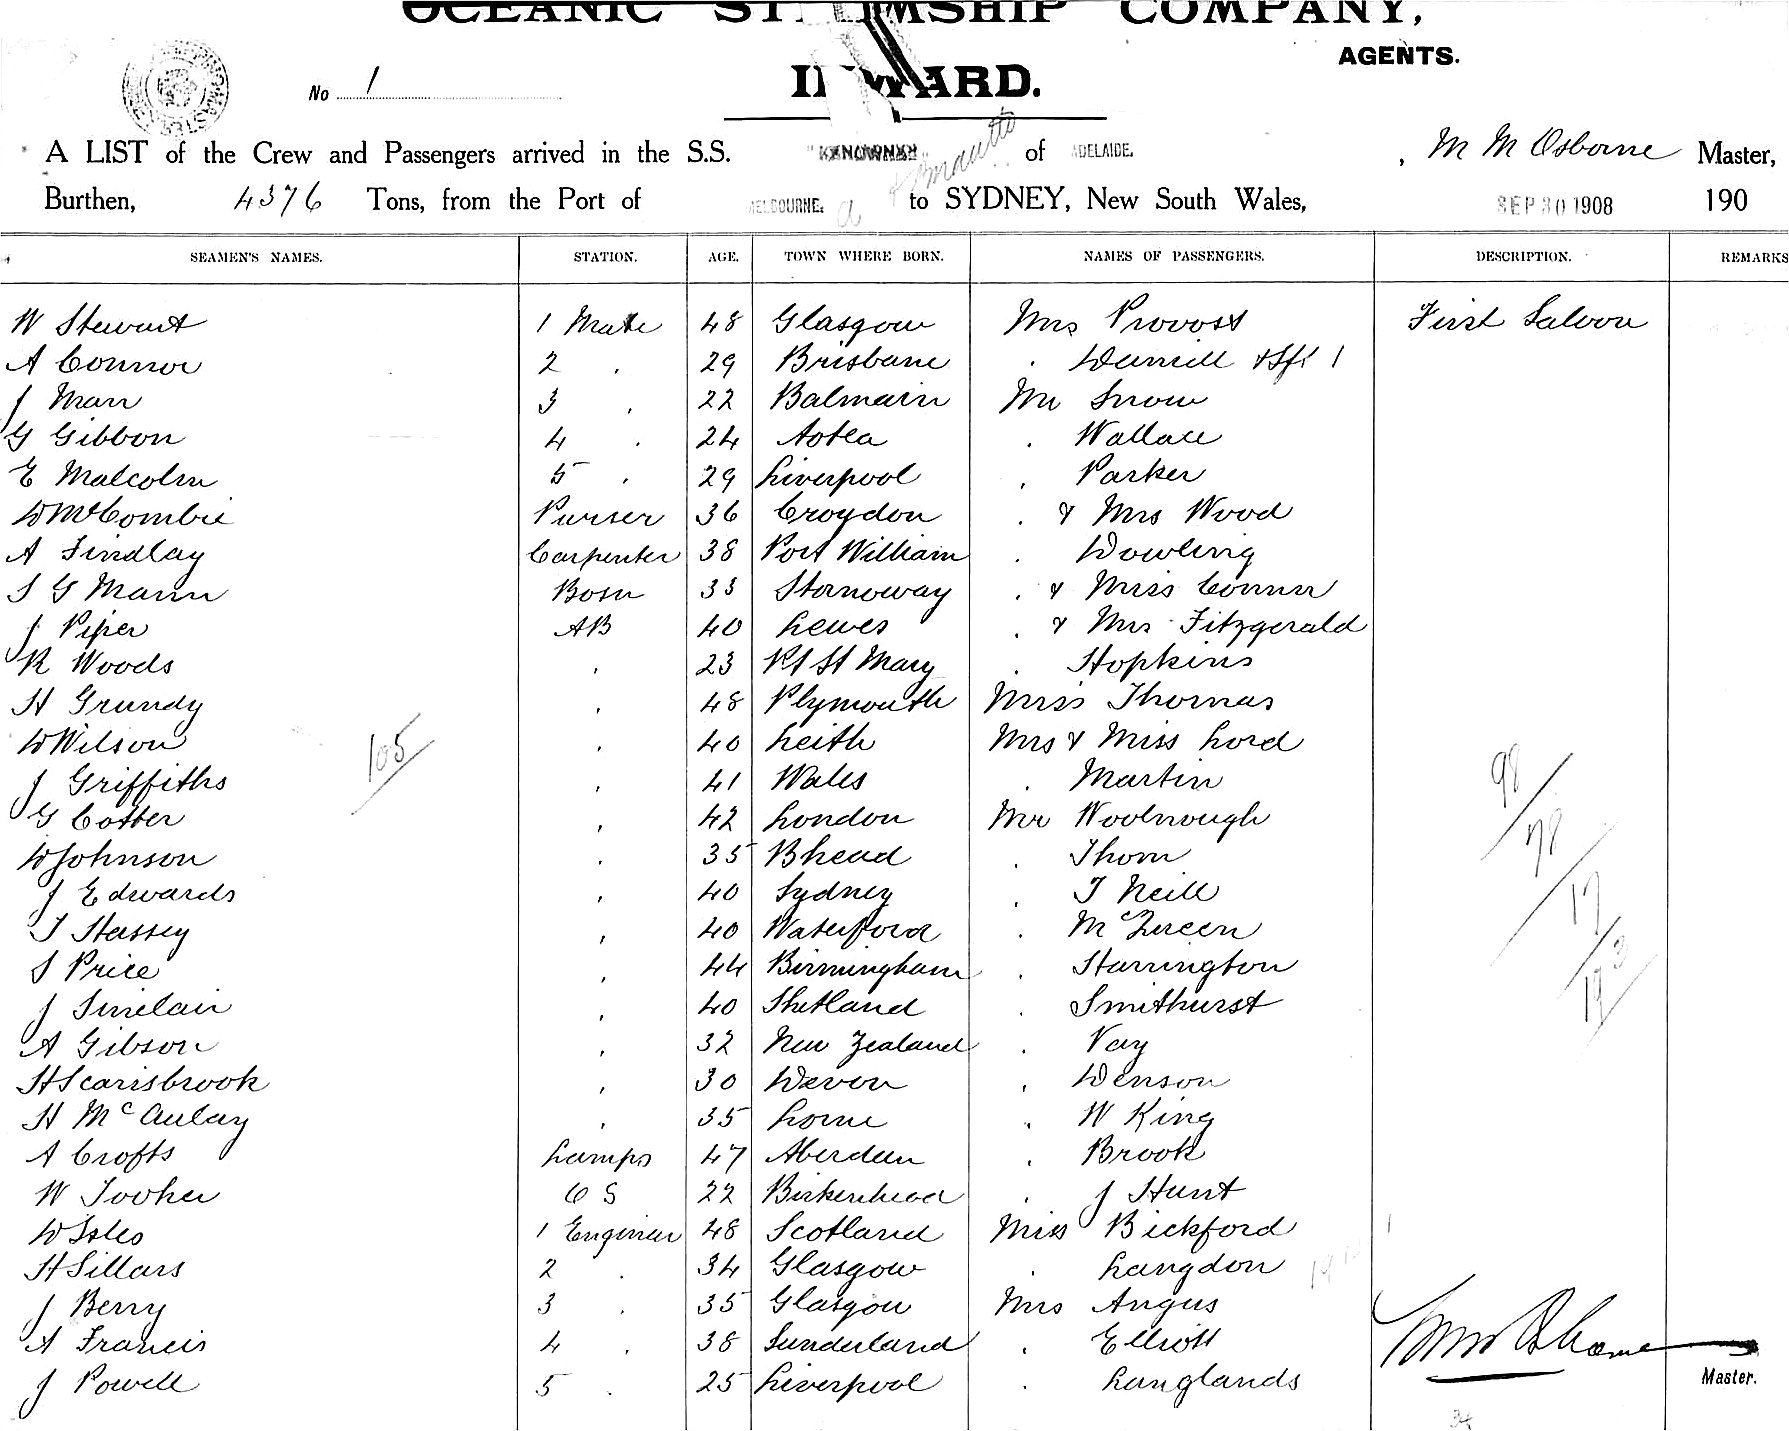 OCEANIC STEAMSHIP COMPANY,
AGENTS.
INWARD.
No 1
A LIST of the Crew and Passengers arrived in the S.S. of ADELAIDE. , M M Osborne Master,
Burthen, 4376 Tons, from the Port of MELBOURNE. to SYDNEY, New South Wales, SEP 30 1908 190
SEAMEN'S NAMES. STATION. AGE. TOWN WHERE BORN. NAMES OF PASSENGERS. DESCRIPTION. REMARKS
W Stewart 1 Mate 48 Glasgow Mrs Provost First Saloon
A Connor 2 . 29 Brisbane .
J Marr 3 . 22 Balmain Mr Snow
G Gibbon 4 . 24 Aotea . Wallace
E Malcolm 5 . 29 Liverpool . Parker
D McCombie Purser 36 Croydon . & Mrs Wood
A Findlay Carpenter 38 Port William . Dowling
S G Mann Bosn 33 Stornoway . & Miss Connor
J Piper AB 40 Lewes . & Mrs Fitzgerald
R Woods . 23 Pt St Mary . Hopkins
H Grundy . 48 Plymouth Miss Thomas
D Wilson . 40 Leith Mrs & Miss Lord
105
J Griffiths . 41 Wales . Martin
98
G Cotter . 42 London Mr Woolnough
78
D Johnson . 35 Bhead . Thom
J Edwards . 40 Sydney . T Neill
17
T Hassey . 40 Waterford . McQueen
3
S Price . 44 Birmingham . Harrington
J Sinclair . 40 Shetland . Smithurst
19
A Gibson . 32 New Zealand . Vay
H Scarisbrook . 30 Devon . Denson
H McAulay . 35 Lorne . W King
A Crofts Lamps 47 Aberdeen . Brook
W Tooker OS 22 Birkenhead . J Hunt
D Isles 1 Engineer 48 Scotland Miss Bickford
H Sillars 2 . 34 Glasgow . Langdon
J Berry 3 . 35 Glasgow Mrs Angus
A Francis 4 . 38 Sunderland . Elliott
J Powell 5 . 25 Liverpool . Langlands
Master.